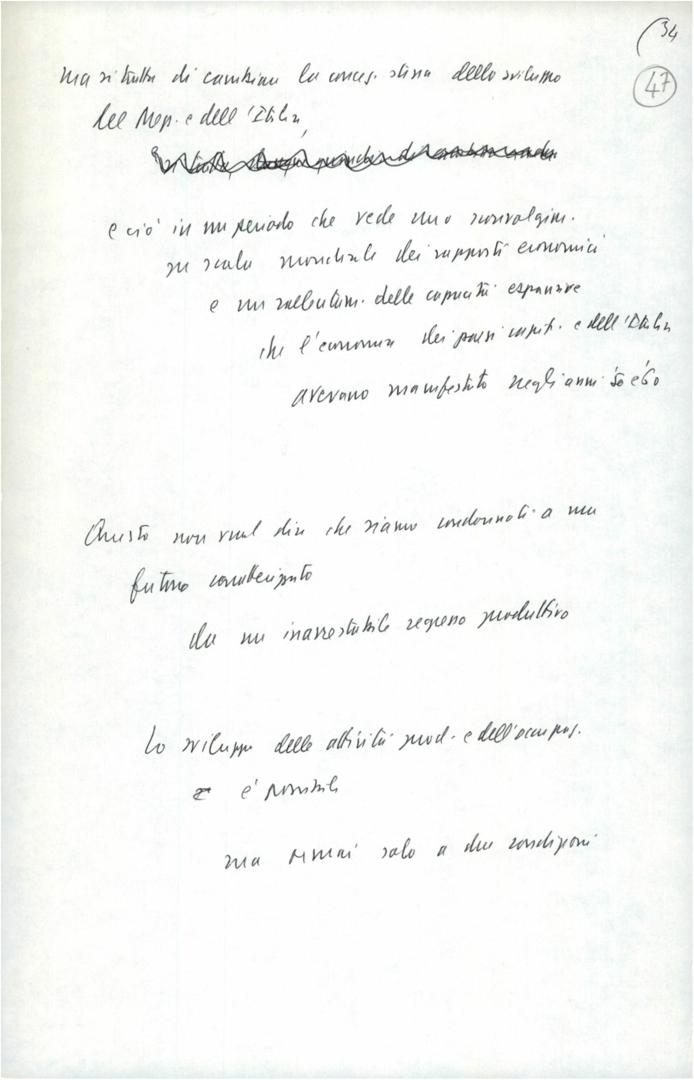 (34
47
ma si tratta di cambiare la concez. stessa dello sviluppo
del Mezz. e dell'Italia,
e ciò in un periodo che vede uno sconvolgim.
su scala mondiale dei rapporti economici
e un rallentam. delle capacità espansive
che l'economia dei paesi capit. e dell'Italia
avevano manifestato negli anni '50 e '60
Questo non vuol dire che siamo condannati a un
futuro caratterizzato
da un inarrestabile regresso produttivo
Lo sviluppo delle attività prod. e dell'occupaz.
è possibile
ma ormai solo a due condizioni